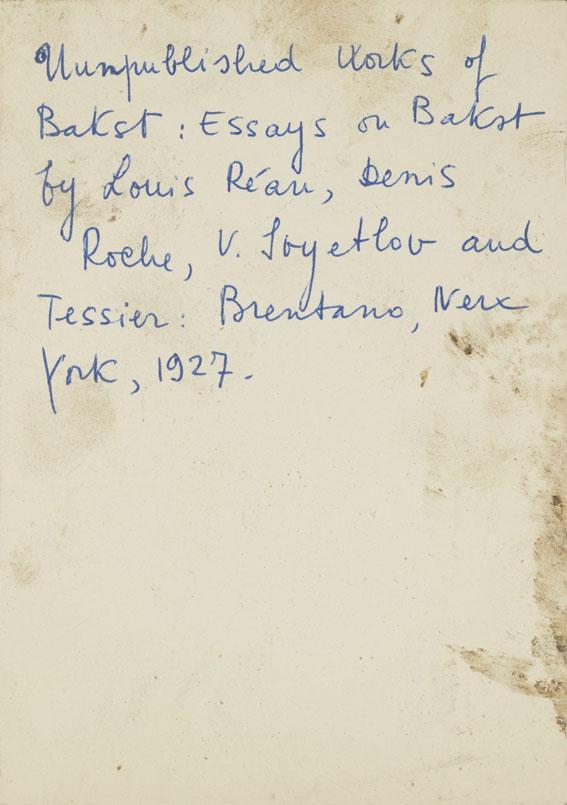 Unpublished Works of
Bakst : Essays on Bakst
by Louis Réau, Denis
Roche, V. Svyetlov and
Tessier : Brentano, New
York, 1927.